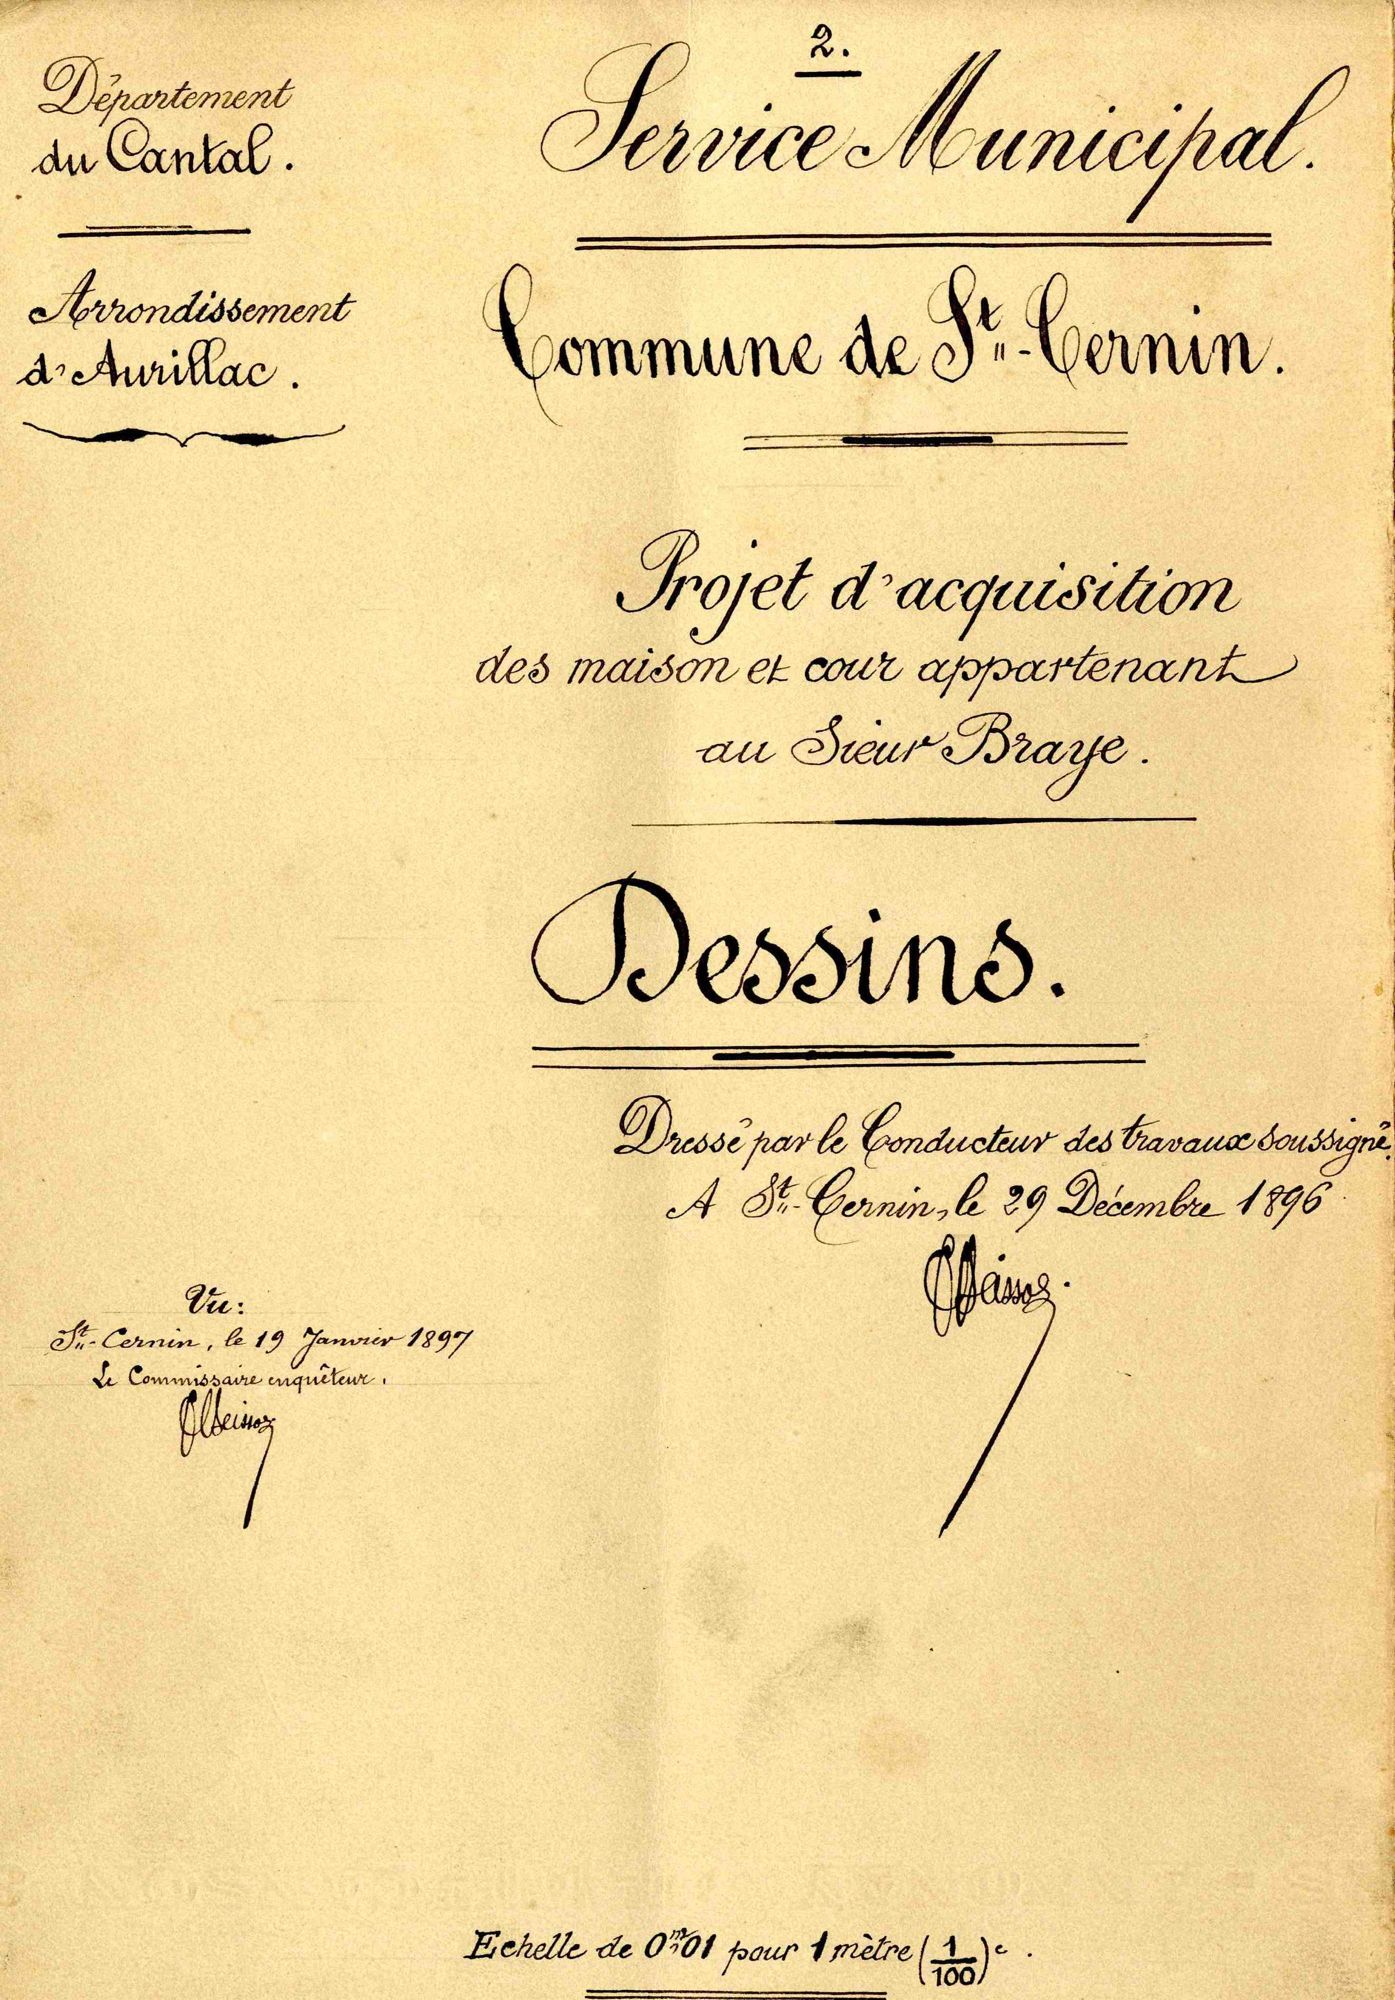 2.
Département
du Cantal.
Arrondissement
d'Aurillac.
Service Municipal.
Commune de St-Cernin.
Projet d'acquisition
des maison et cour appartenant
au Sieur Braye.
Dessins.
Dressé par le Conducteur des travaux soussigné.
A St-Cernin, le 29 Décembre 1896
Vu:
St-Cernin, le 19 Janvier 1897
Le Commissaire enquêteur.
Echelle de 0m,01 pour 1 mètre (1/100)e.